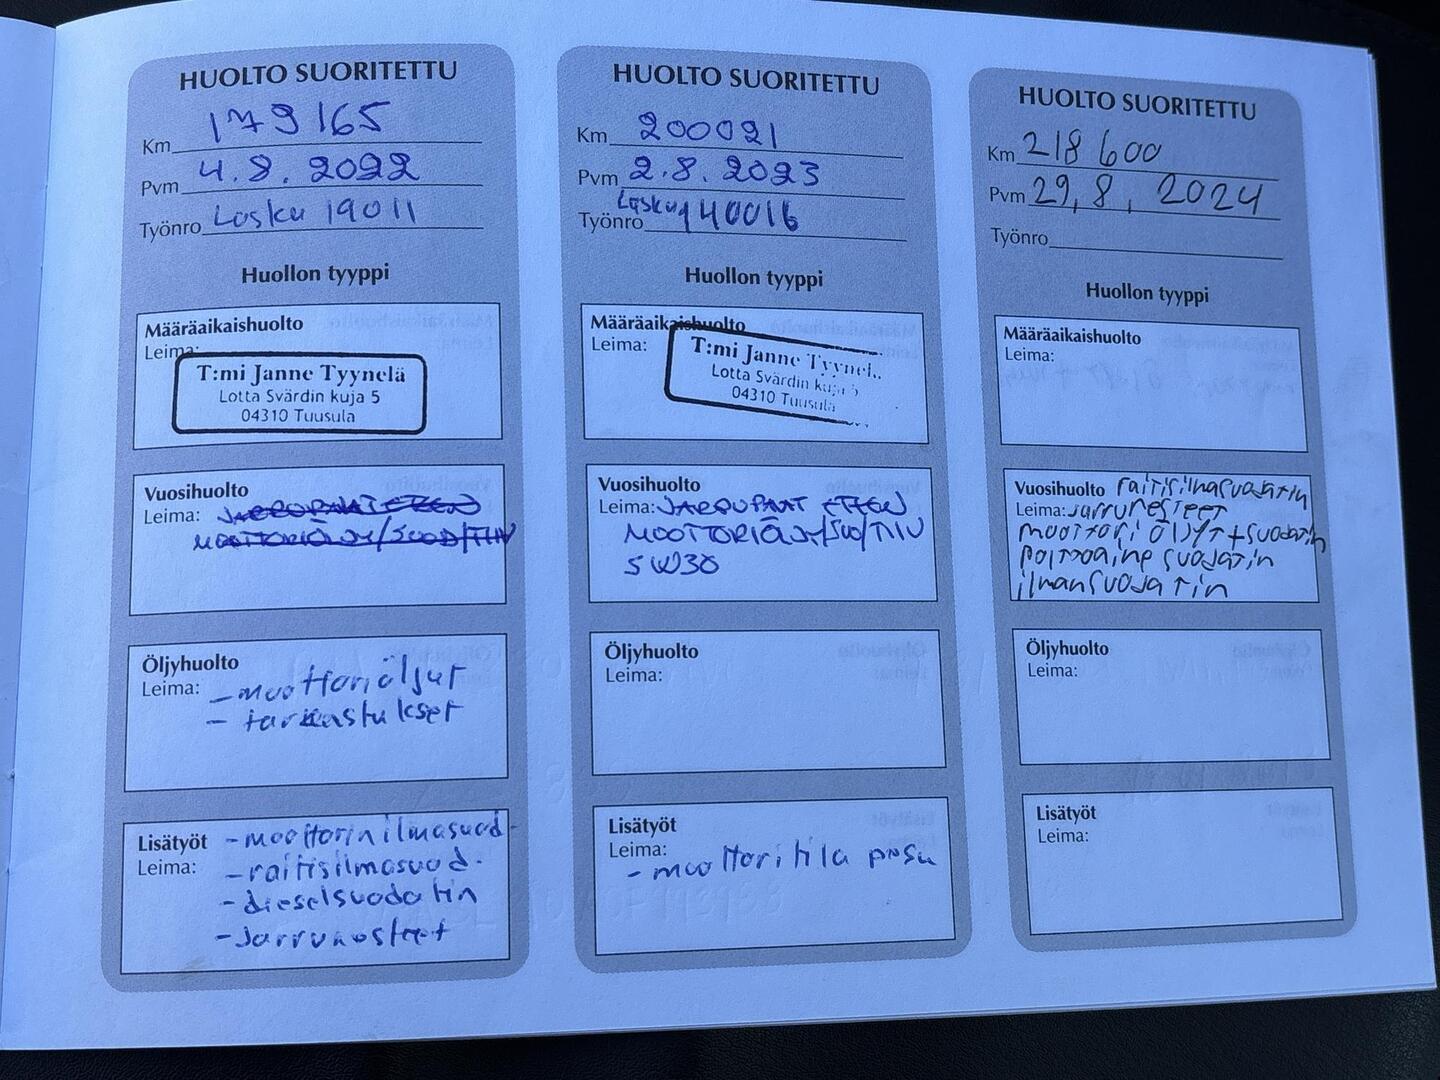 HUOLTO SUORITETTU
Km 179165
Pvm 4.8.2022
Työnro Lasku 19011
Huollon tyyppi
Määräaikaishuolto
Leima:
T:mi Janne Tyynelä
Lotta Svärdin kuja 5
04310 Tuusula
Vuosihuolto
Leima: JARRUPALAT ETEEN
MOOTTORIÖLJY/SUOD/TIIV
Öljyhuolto
Leima: - moottoriöljyt
- tarkastukset
Lisätyöt - moottorin ilmasuod-
Leima: - raitisilmasuod.
- dieselsuodatin
- jarrunesteet
HUOLTO SUORITETTU
Km 200021
Pvm 2.8.2023
Työnro Lasku 140016
Huollon tyyppi
Määräaikaishuolto
Leima:
T:mi Janne Tyynel
Lotta Svärdin kuja 5
04310 Tuusula
Vuosihuolto
Leima: JARRUPALAT ETEEN
MOOTTORIÖLJY/SUO/TIIV
5W30
Öljyhuolto
Leima:
Lisätyöt
Leima:
- moottoritila pesu
HUOLTO SUORITETTU
Km 218 600
Pvm 29.8.2024
Työnro
Huollon tyyppi
Määräaikaishuolto
Leima:
Vuosihuolto raitisilmasuodatin
Leima: jarrunesteet
moottori öljyt + suodatin
polttoaine suodatin
ilmansuodatin
Öljyhuolto
Leima:
Lisätyöt
Leima: